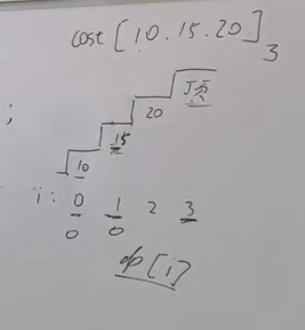 cost [10.15.20] 3
;
顶
20
15
10
i: 0 1 2 3
0 0
dp[i]